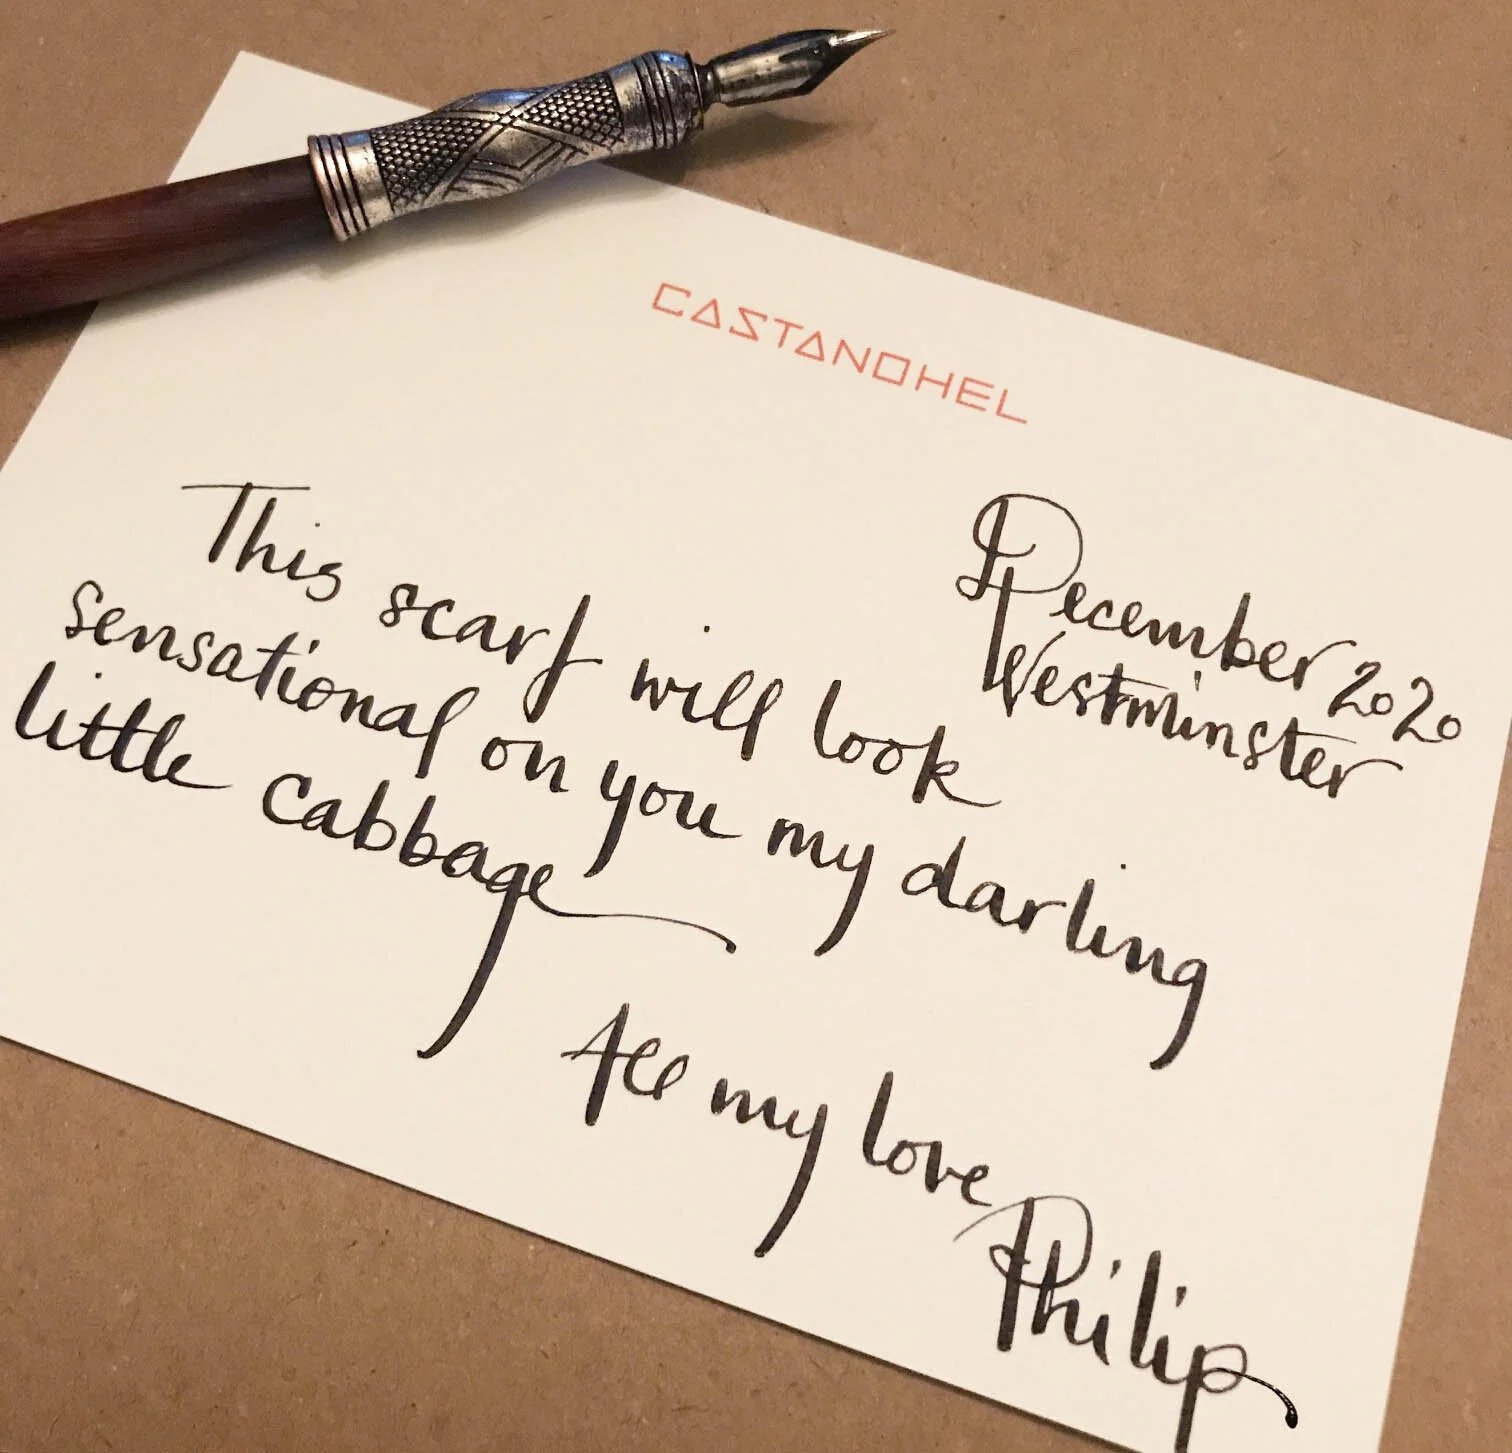 CASTANOHEL
December 2020
Westminster
This scarf will look
sensational on you my darling
little cabbage
All my love
Philip